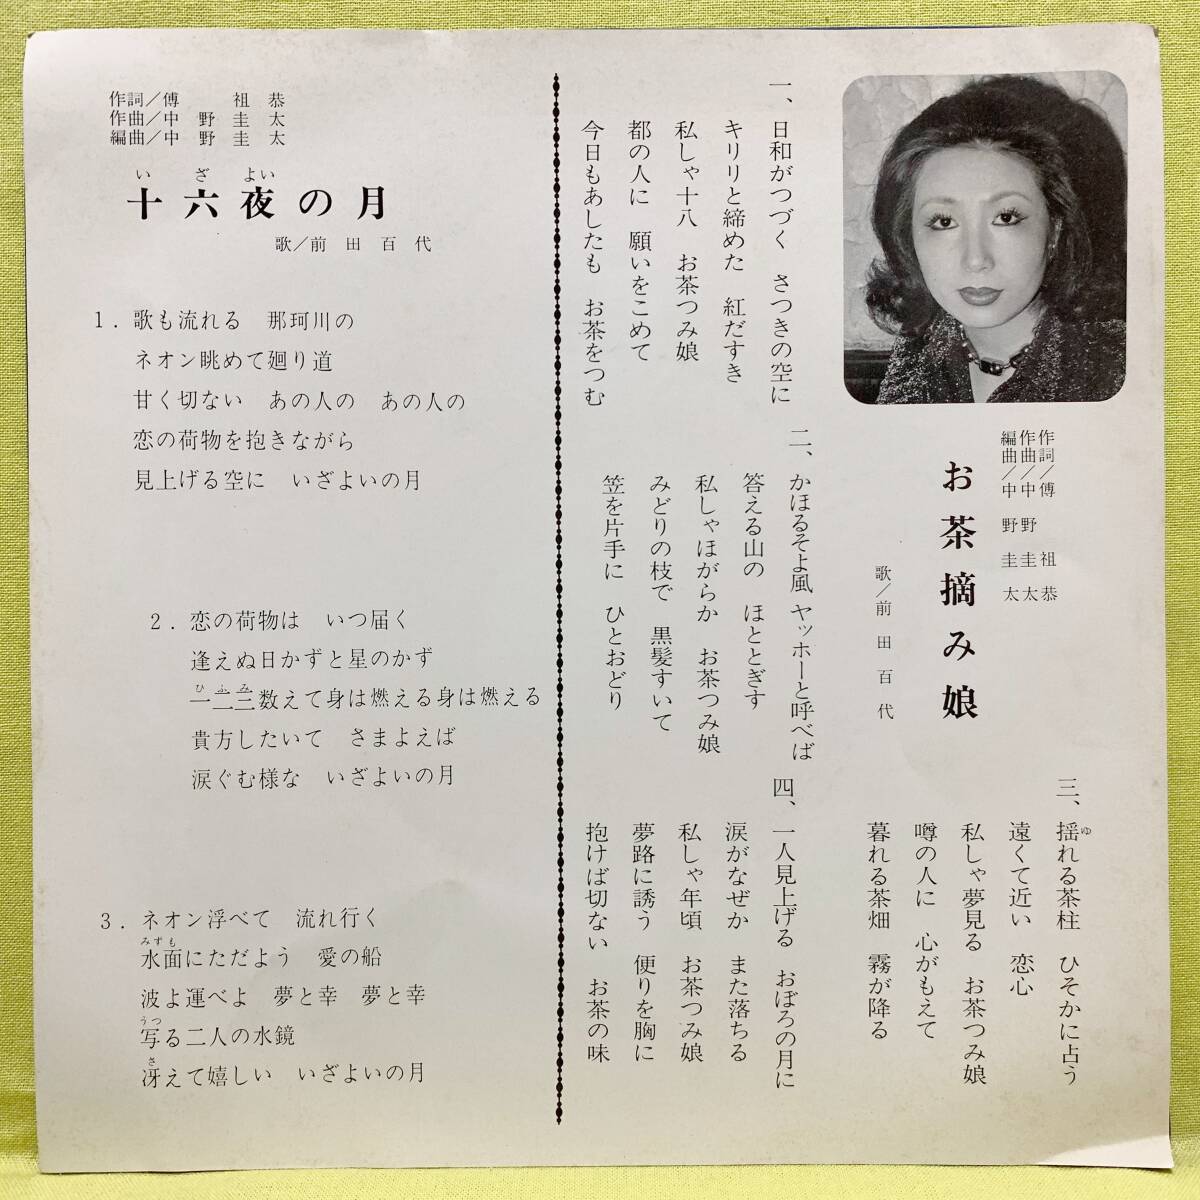 作詞／傅　祖恭
作曲／中野圭太
編曲／中野圭太
お茶摘み娘
歌／前田百代
一、日和がつづく　さつきの空に
キリリと締めた　紅だすき
私しゃ十八　お茶つみ娘
都の人に　願いをこめて
今日もあしたも　お茶をつむ
二、かほるそよ風　ヤッホーと呼べば
答える山の　ほととぎす
私しゃほがらか　お茶つみ娘
みどりの枝で　黒髪すいて
笠を片手に　ひとおどり
三、揺れる茶柱　ひそかに占う
ゆ
遠くて近い　恋心
私しゃ夢見る　お茶つみ娘
噂の人に　心がもえて
暮れる茶畑　霧が降る
四、一人見上げる　おぼろの月に
涙がなぜか　また落ちる
私しゃ年頃　お茶つみ娘
夢路に誘う　便りを胸に
抱けば切ない　お茶の味
作詞／傅　祖恭
作曲／中野圭太
編曲／中野圭太
いざよい
十六夜の月
歌／前田百代
1．歌も流れる　那珂川の
ネオン眺めて廻り道
甘く切ない　あの人の　あの人の
恋の荷物を抱きながら
見上げる空に　いざよいの月
2．恋の荷物は　いつ届く
逢えぬ日かずと星のかず
ひふみ
一二三数えて身は燃える身は燃える
貴方したいて　さまよえば
涙ぐむ様な　いざよいの月
3．ネオン浮べて　流れ行く
みずも
水面にただよう　愛の船
波よ運べよ　夢と幸　夢と幸
うつ
写る二人の水鏡
さ
冴えて嬉しい　いざよいの月